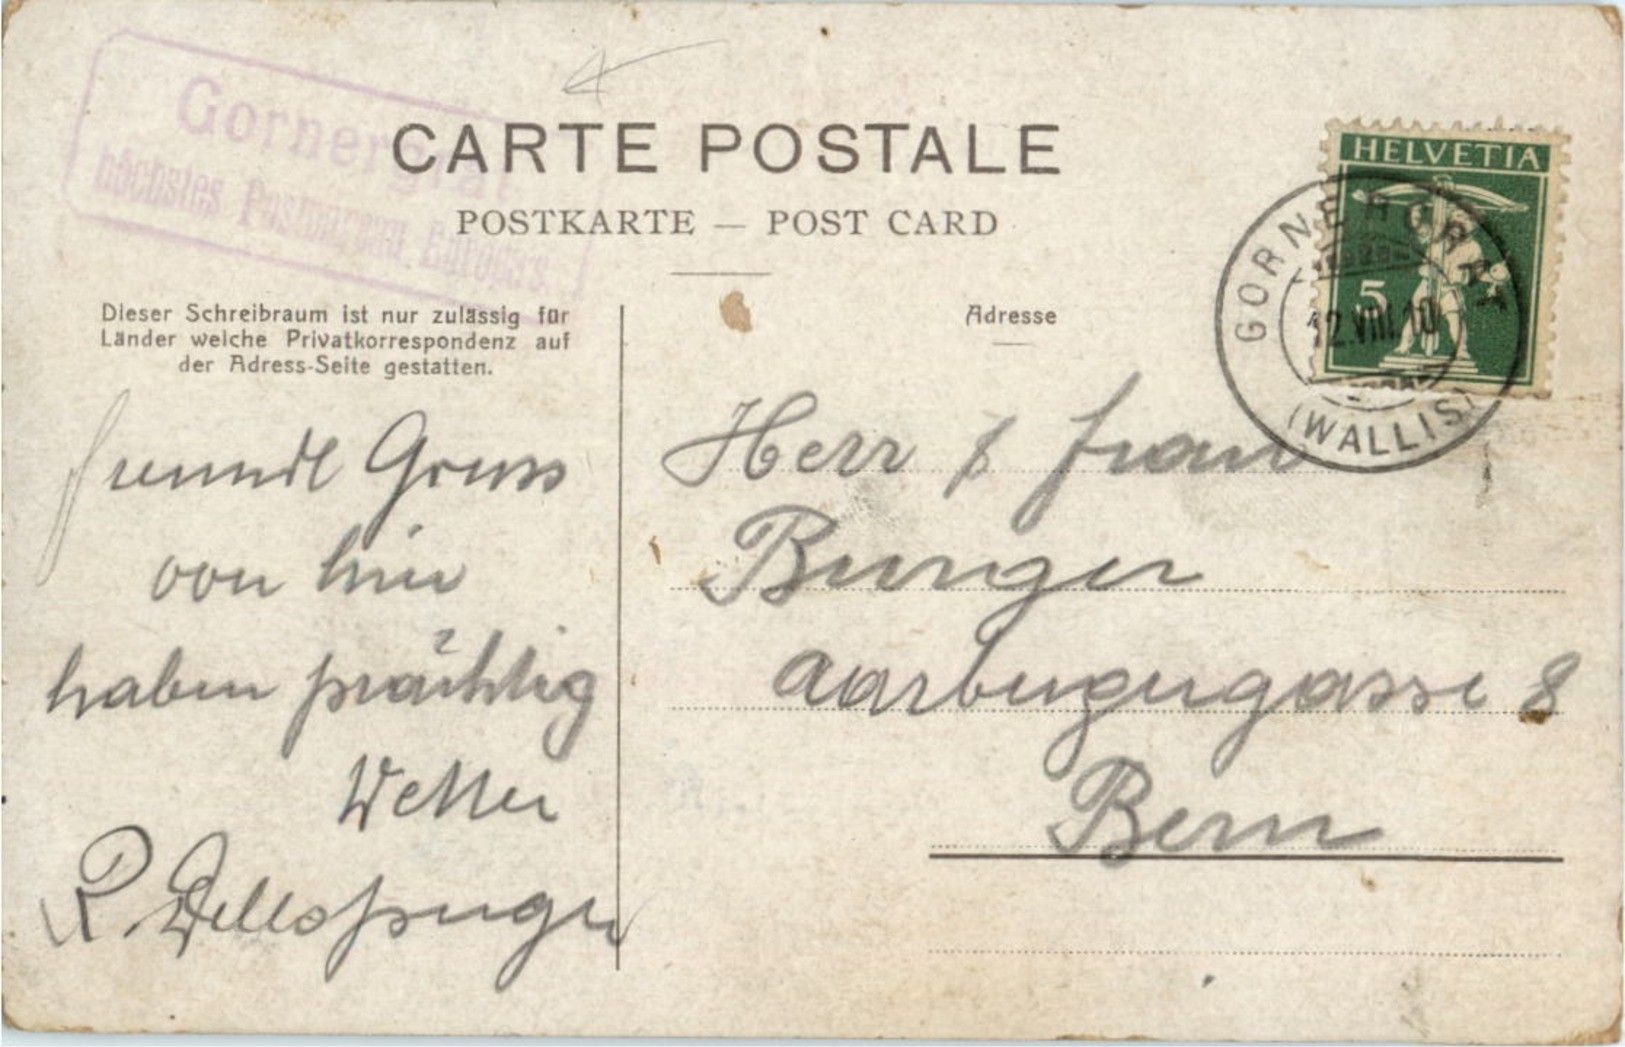 Gornergrat
höchstes Postbureau Europas.
CARTE POSTALE
POSTKARTE — POST CARD
HELVETIA
5
GORNERGRAT
12.VIII.10
(WALLIS)
Dieser Schreibraum ist nur zulässig für
Länder welche Privatkorrespondenz auf
der Adress-Seite gestatten.
freundl Gruss
von hier
haben prächtig
Wetter
R. Dellsperger
Adresse
Herr & Frau
Burger
Aarbergergasse 8
Bern